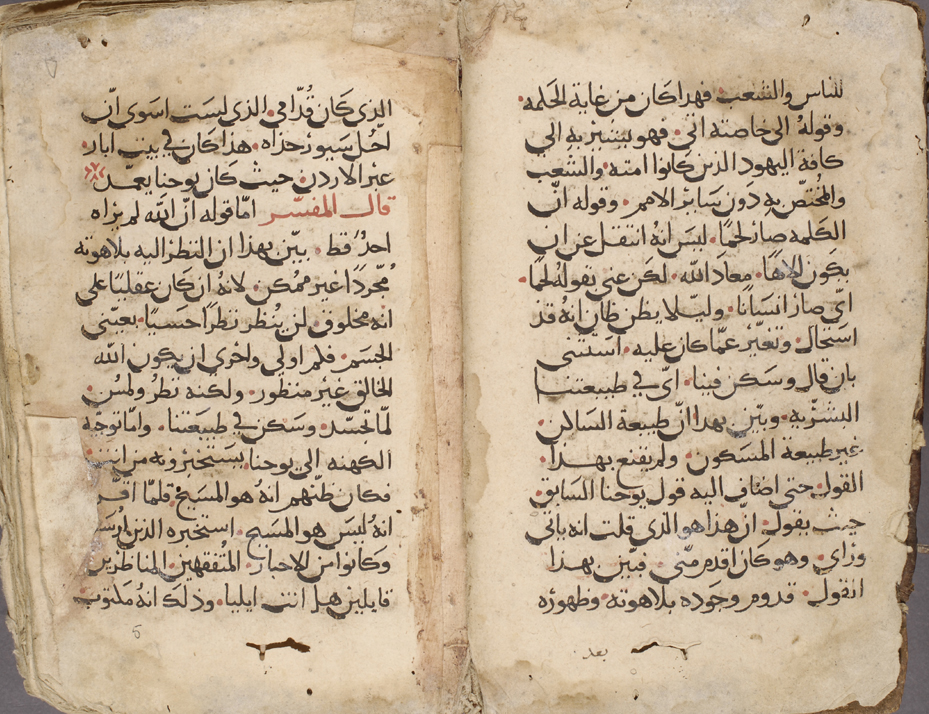 للناس والشعب فهدا كان من غاية الحلمه.
وقوله الى خاصته اتى. فهو يشير به الي
كافة اليهود الذين كانوا امته. والشعب
والمختص به دون سائر الامم. وقوله ان
الكلمه صار لحمًا. ليس انه انتقل عن ان
يكون الاهًا. معاذ الله. لكن عنى بقوله لحمًا.
اي صار انسانًا. وليلا يظن ظان انه قد
استحال وتغير عما كان عليه. استثنى
بان قال وسكن فينا. اي في طبيعتنا
البشريه. وبين بهدا ان طبيعة الساكن.
غير طبيعة المسكون. ولم يقنع بهدا.
القول. حتى اضاف اليه قول يوحنا السابق.
حيث يقول. ان هذا هو الذي قلت انه ياتي
وراي. وهو كان اقدم مني. فبين بهدا
القول. قدوم وجوده بلاهوته. وظهوره
بعد
الذي كان قدامي. الذي لست اسوى ان
احل سيور حذاه. هذا كان في بيت ابار.
عبر الاردن. حيث كان يوحنا يعمد.
قال المفسر اما قوله ان الله لم يراه
احد قط. بين بهذا ان النظر اليه بلاهوته
مجردًا غير ممكن. لانه ان كان عقليًا على
انه مخلوق. لن ينظر نظرًا حسيًا. بعينى
الجسم. فلم اولى واحرى ان يكون الله
الخالق غير منظور. ولكنه نظر ولمس.
لما تجسد. وسكن في طبيعتنا. واما توجه
الكهنه الى يوحنا. يستخبرونه من انت
فكان ظنهم انه هو المسيح. فلما اقر
انه ليس هو المسيح. استخبره الذين ارسلـ
وكانوا من الاحبار. المتفقهين. المناظرين
قايلين هل انت ايليا. وذلك انه مكتوب
5